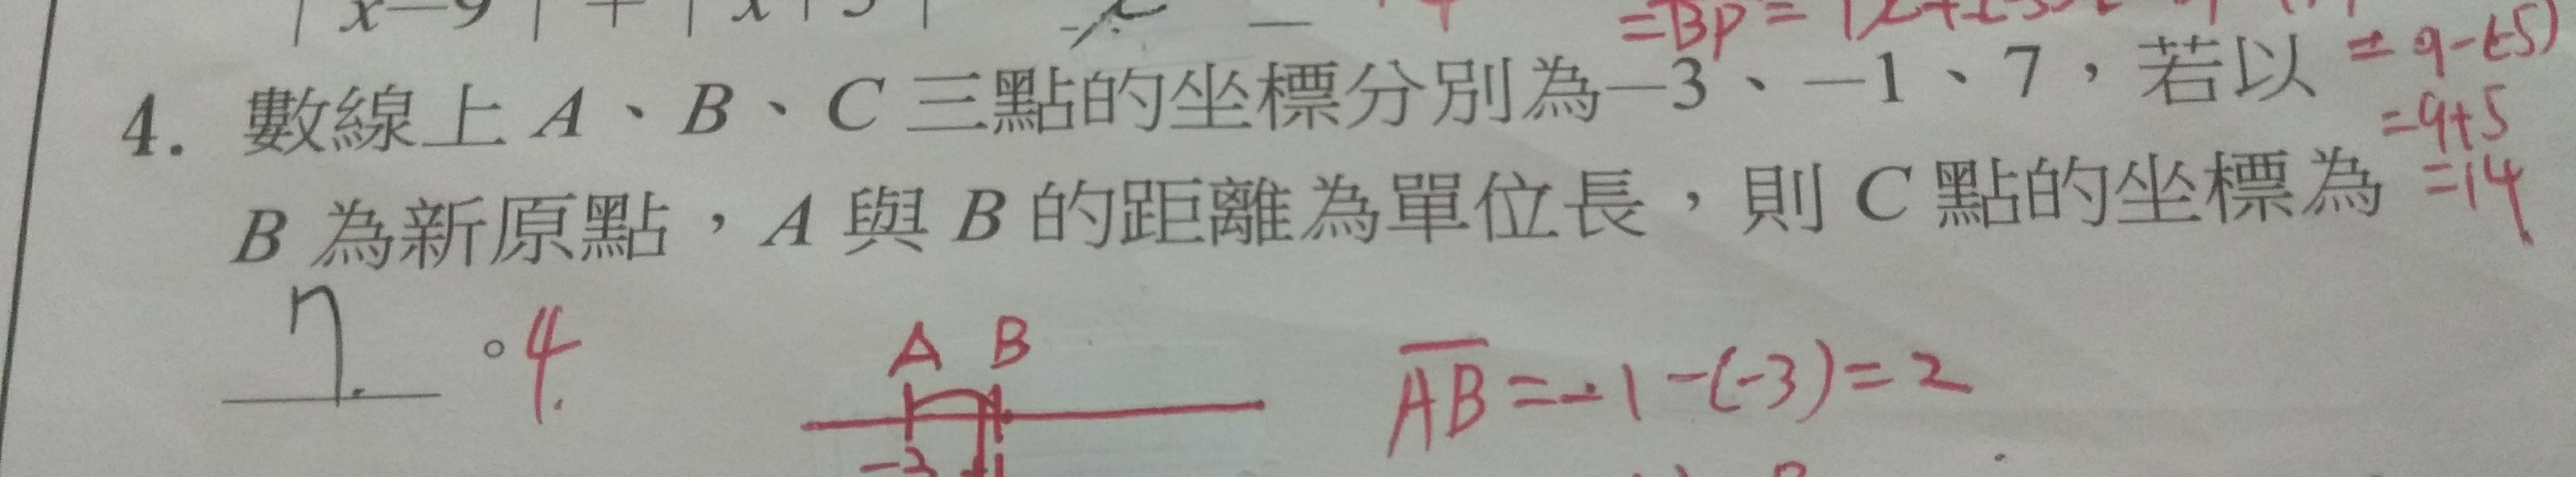 4. 數線上 A、B、C 三點的坐標分別為−3、−1、7，若以
= 9-(-5)
=9+5
B 為新原點，A 與 B 的距離為單位長，則 C 點的坐標為
=14
7 。4.
A B
AB = -1-(-3)=2